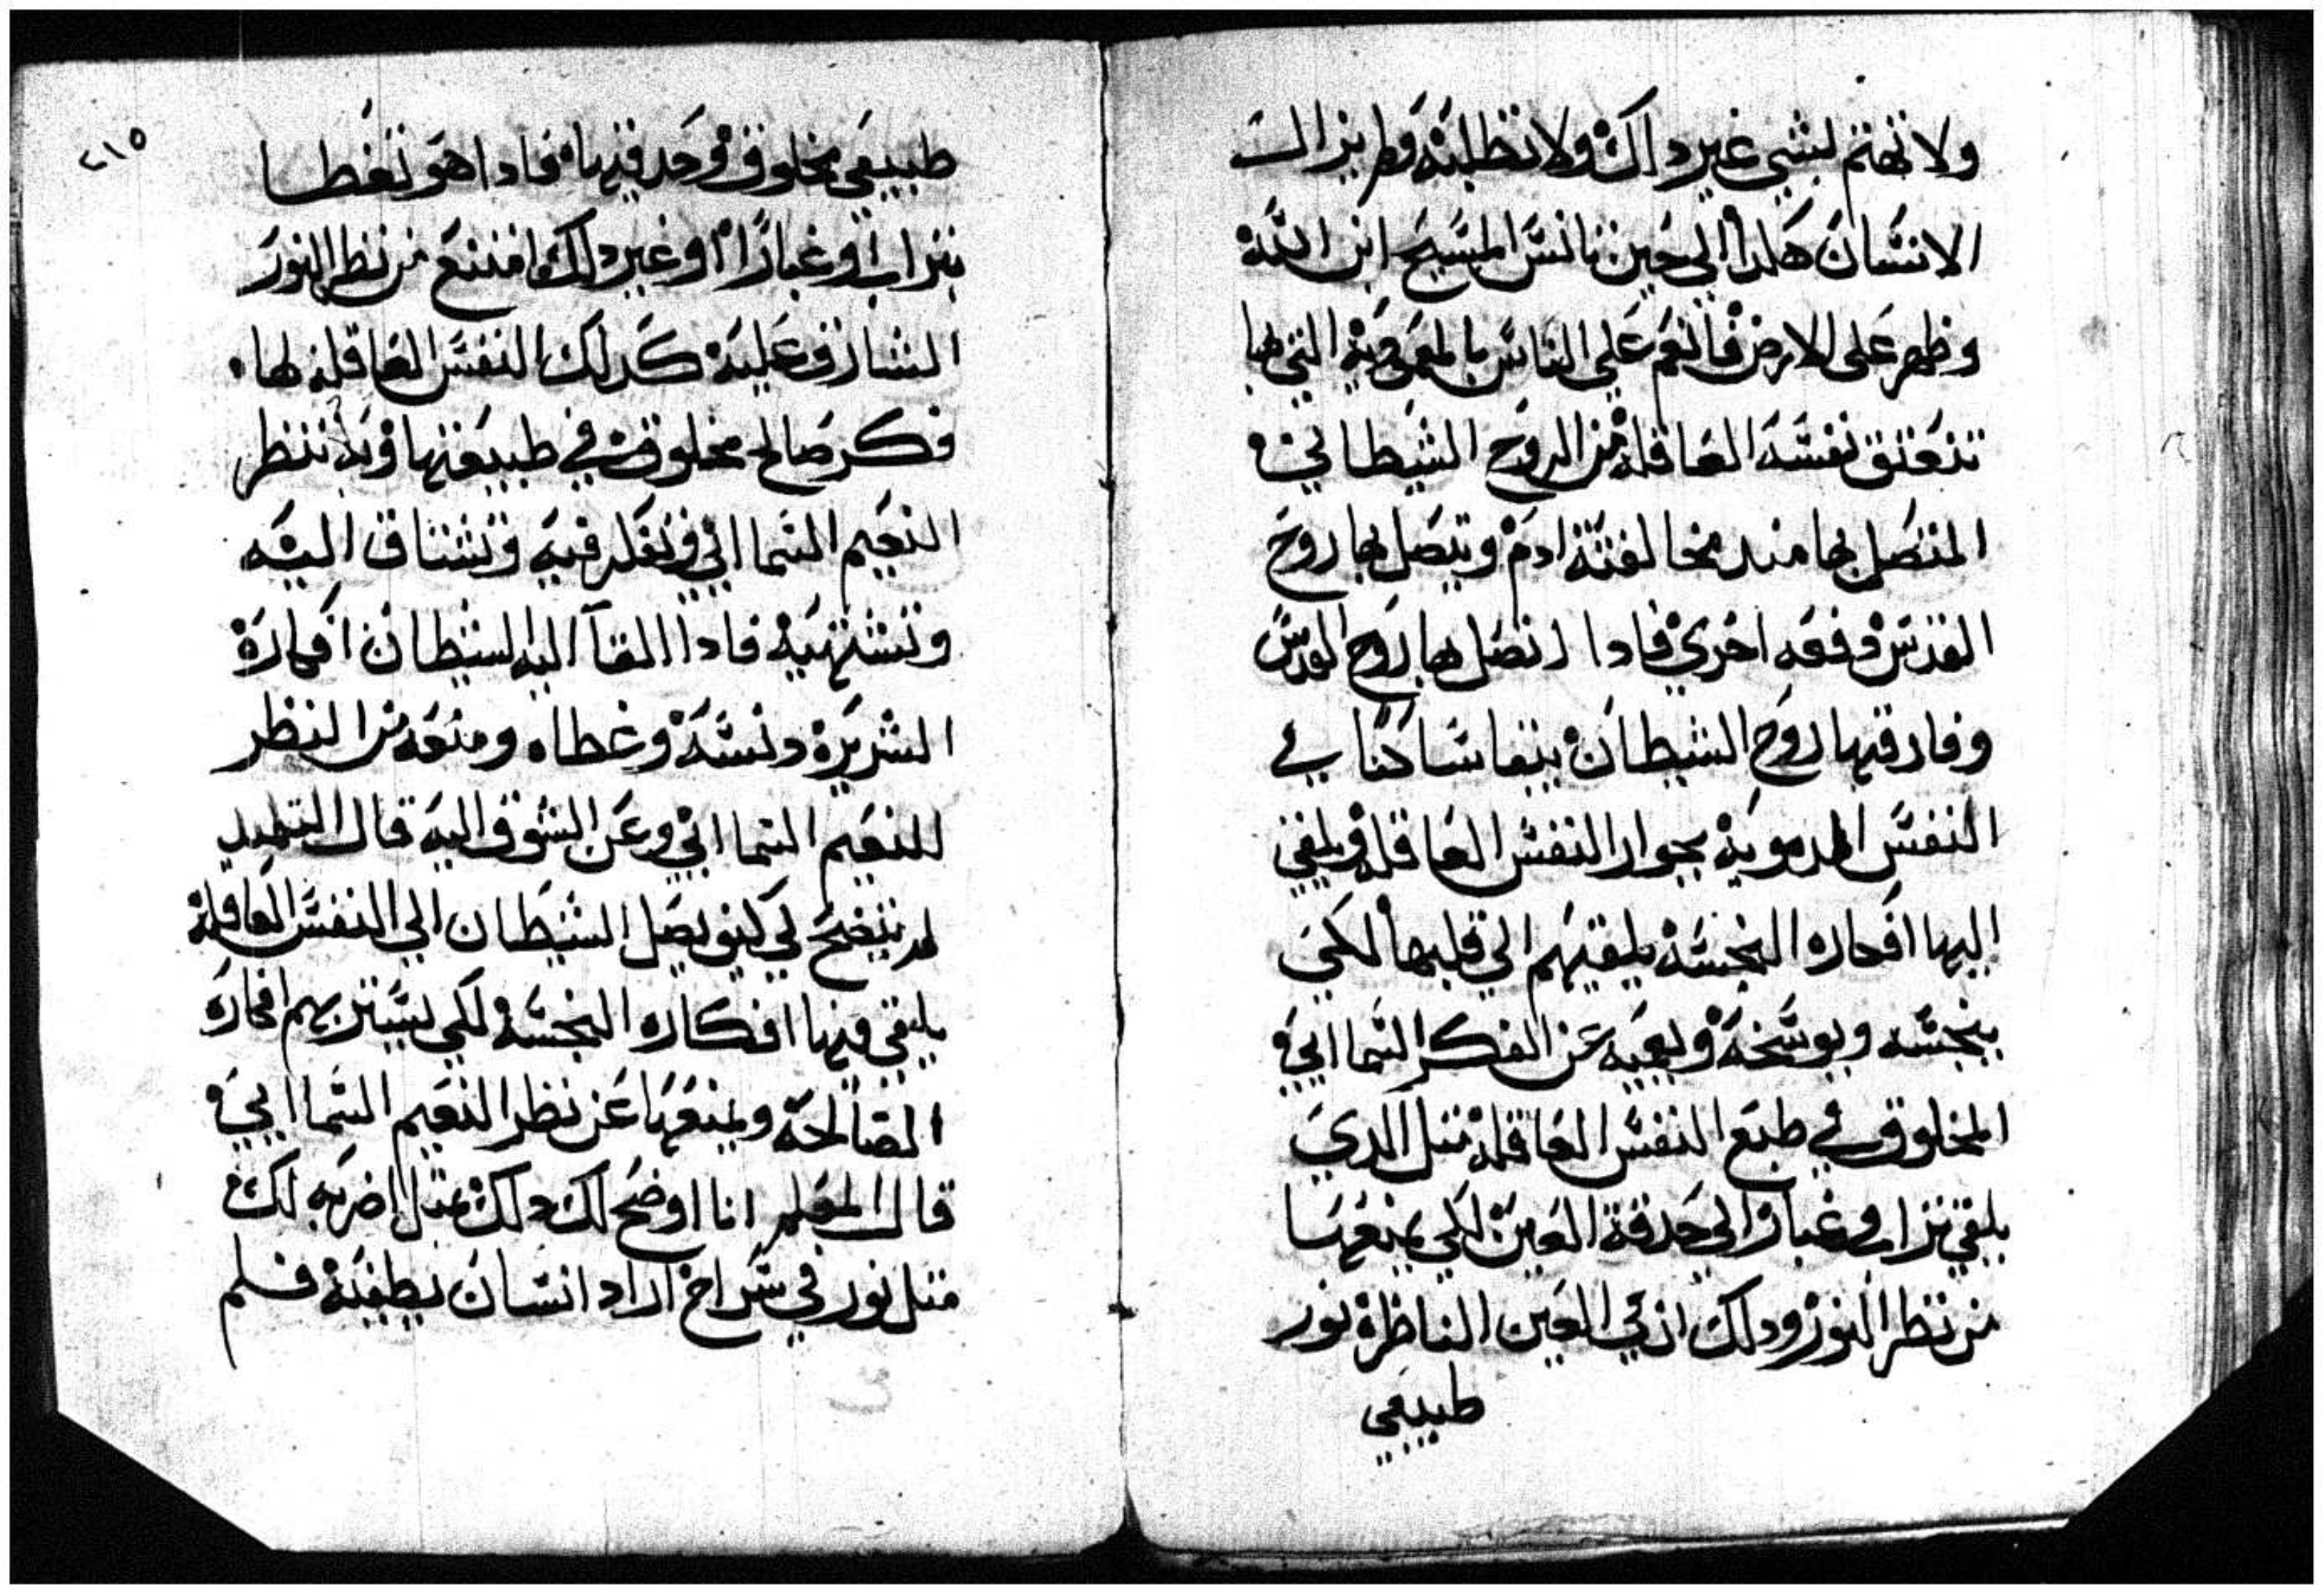 ولا تهتم بشي غير داك ولا تطلبه ولم يزال
الانسان هكدا الي حين تانس المسيح ابن الله
وظهر على الارض فانعم علي الناس بالمعمودية التي بها
تنعتق نفسه العاقلة من الروح الشيطاني
المتصل بها مند مخالفة ادم ويتصل بها روح
القدس دفعه اخري فادا اتصل بها روح القدس
وفارقها روح الشيطان يبقا ساكنا في
النفس الدموية بجوار النفس العاقلة ويلقي
اليها افكاره النجسة يلقيهم الي قلبها لكي
ينجسه ويوسخه ويعميه عن الفكر السمااىي
المخلوق في طبع النفس العاقلة متل الدي
يلقي تراب وغبار الي حدقة العين لكي يمنعها
من نظر النور ودلك ان في العين الناظرة نور
طبيعي
٢١٥
طبيعي مخلوق في حدقتها فادا هو تغطا
بتراب او غبارا او غير دلك امتنع من نظر النور
الشارق عليه كدلك النفس العاقله لها
فكر صالح مخلوق في طبيعتها وبه تنظر
النعيم السمااىي وتفكر فيه وتشتاق اليه
وتشتهيه فادا القا اليه الشيطان افكاره
الشريرة دنسه وغطاه ومنعه من النظر
للنعيم السمااىي وعن الشوق اليه قال التلميد
لم يتضح لي كيف يصل الشيطان الي النفس العاقلة
يلقي فيها افكاره النجسة لكي يستر بهم افكاره
الصالحة ويمنعها عن نظر النعيم السمااىي
قال المعلم انا اوضح لك دلك بمتل اضربه لك
متل نور في سراج اراد انسان يطفيه فلم